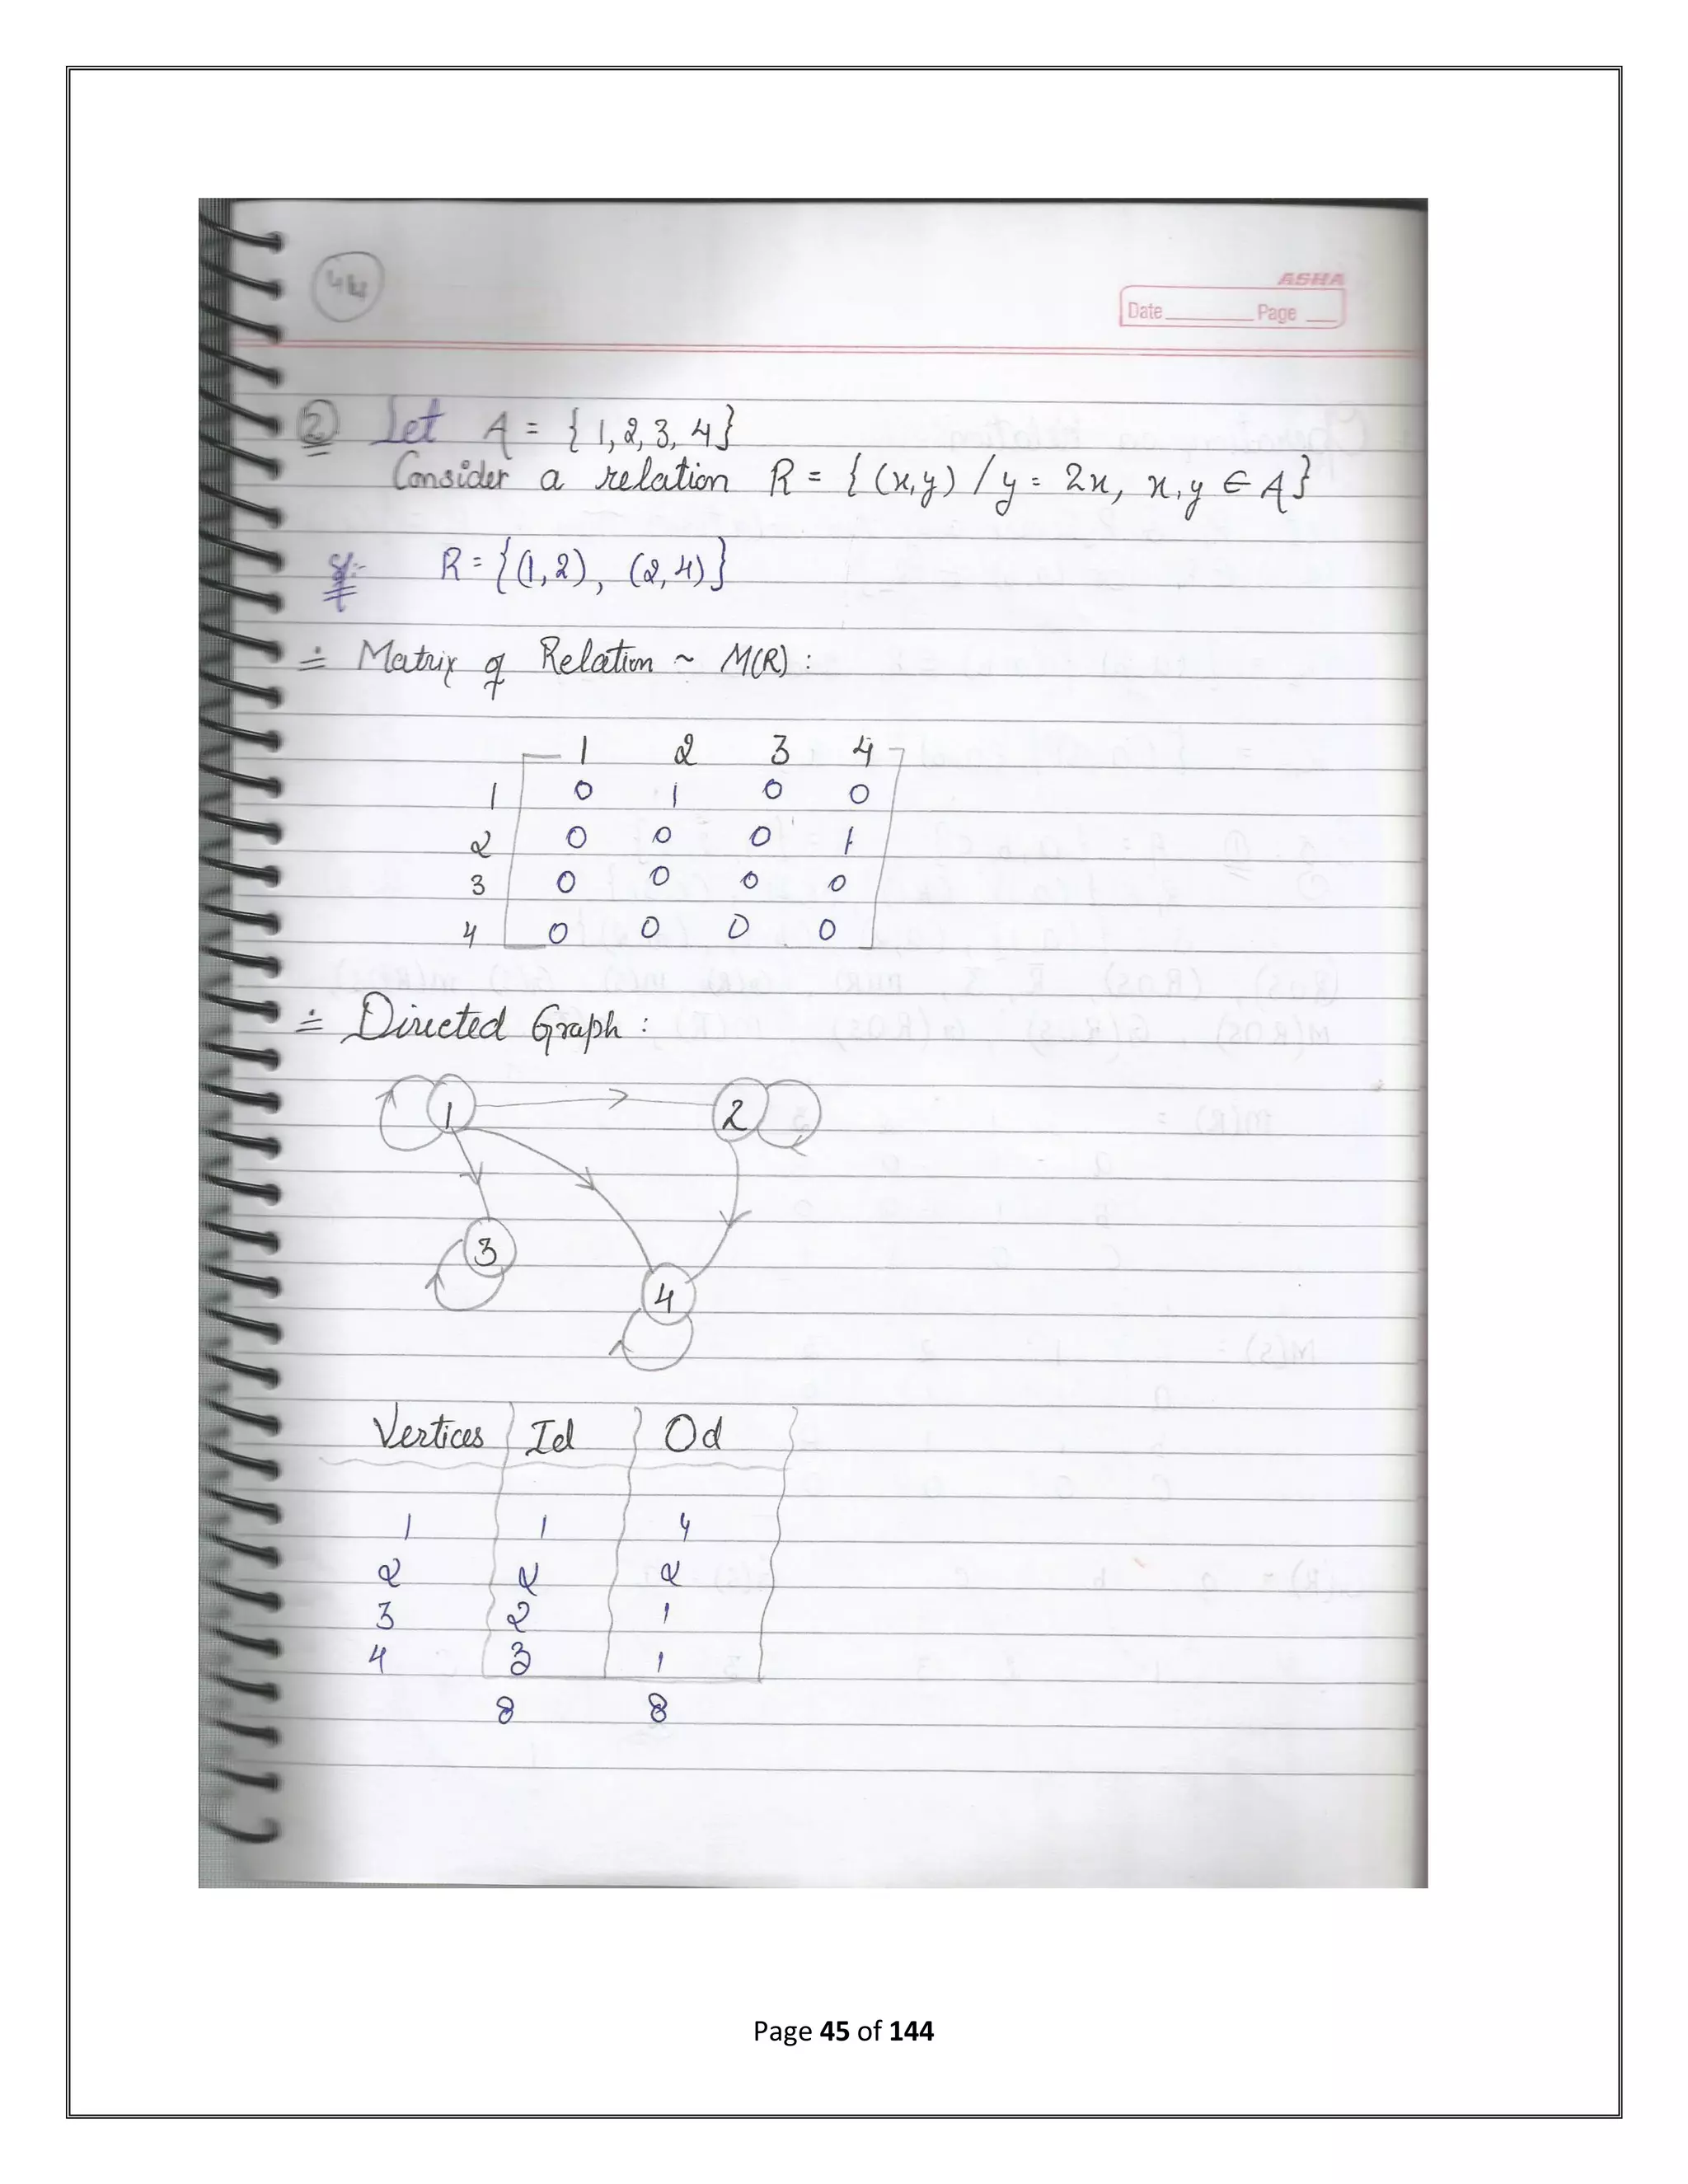 44
ASHA
Date Page
② Let A = { 1, 2, 3, 4}
Consider a relation R = { (x,y) / y = 2x, x,y ∈ A}
Sol:- R = {(1,2), (2,4)}
≐ Matrix of Relation ~ M(R) :
1 2 3 4
1 0 1 0 0
2 0 0 0 1
3 0 0 0 0
4 0 0 0 0
≐ Directed Graph :
1 2
3
4
Vertices Id Od
1 1 4
2 2 2
3 2 1
4 3 1
8 8
Page 45 of 144